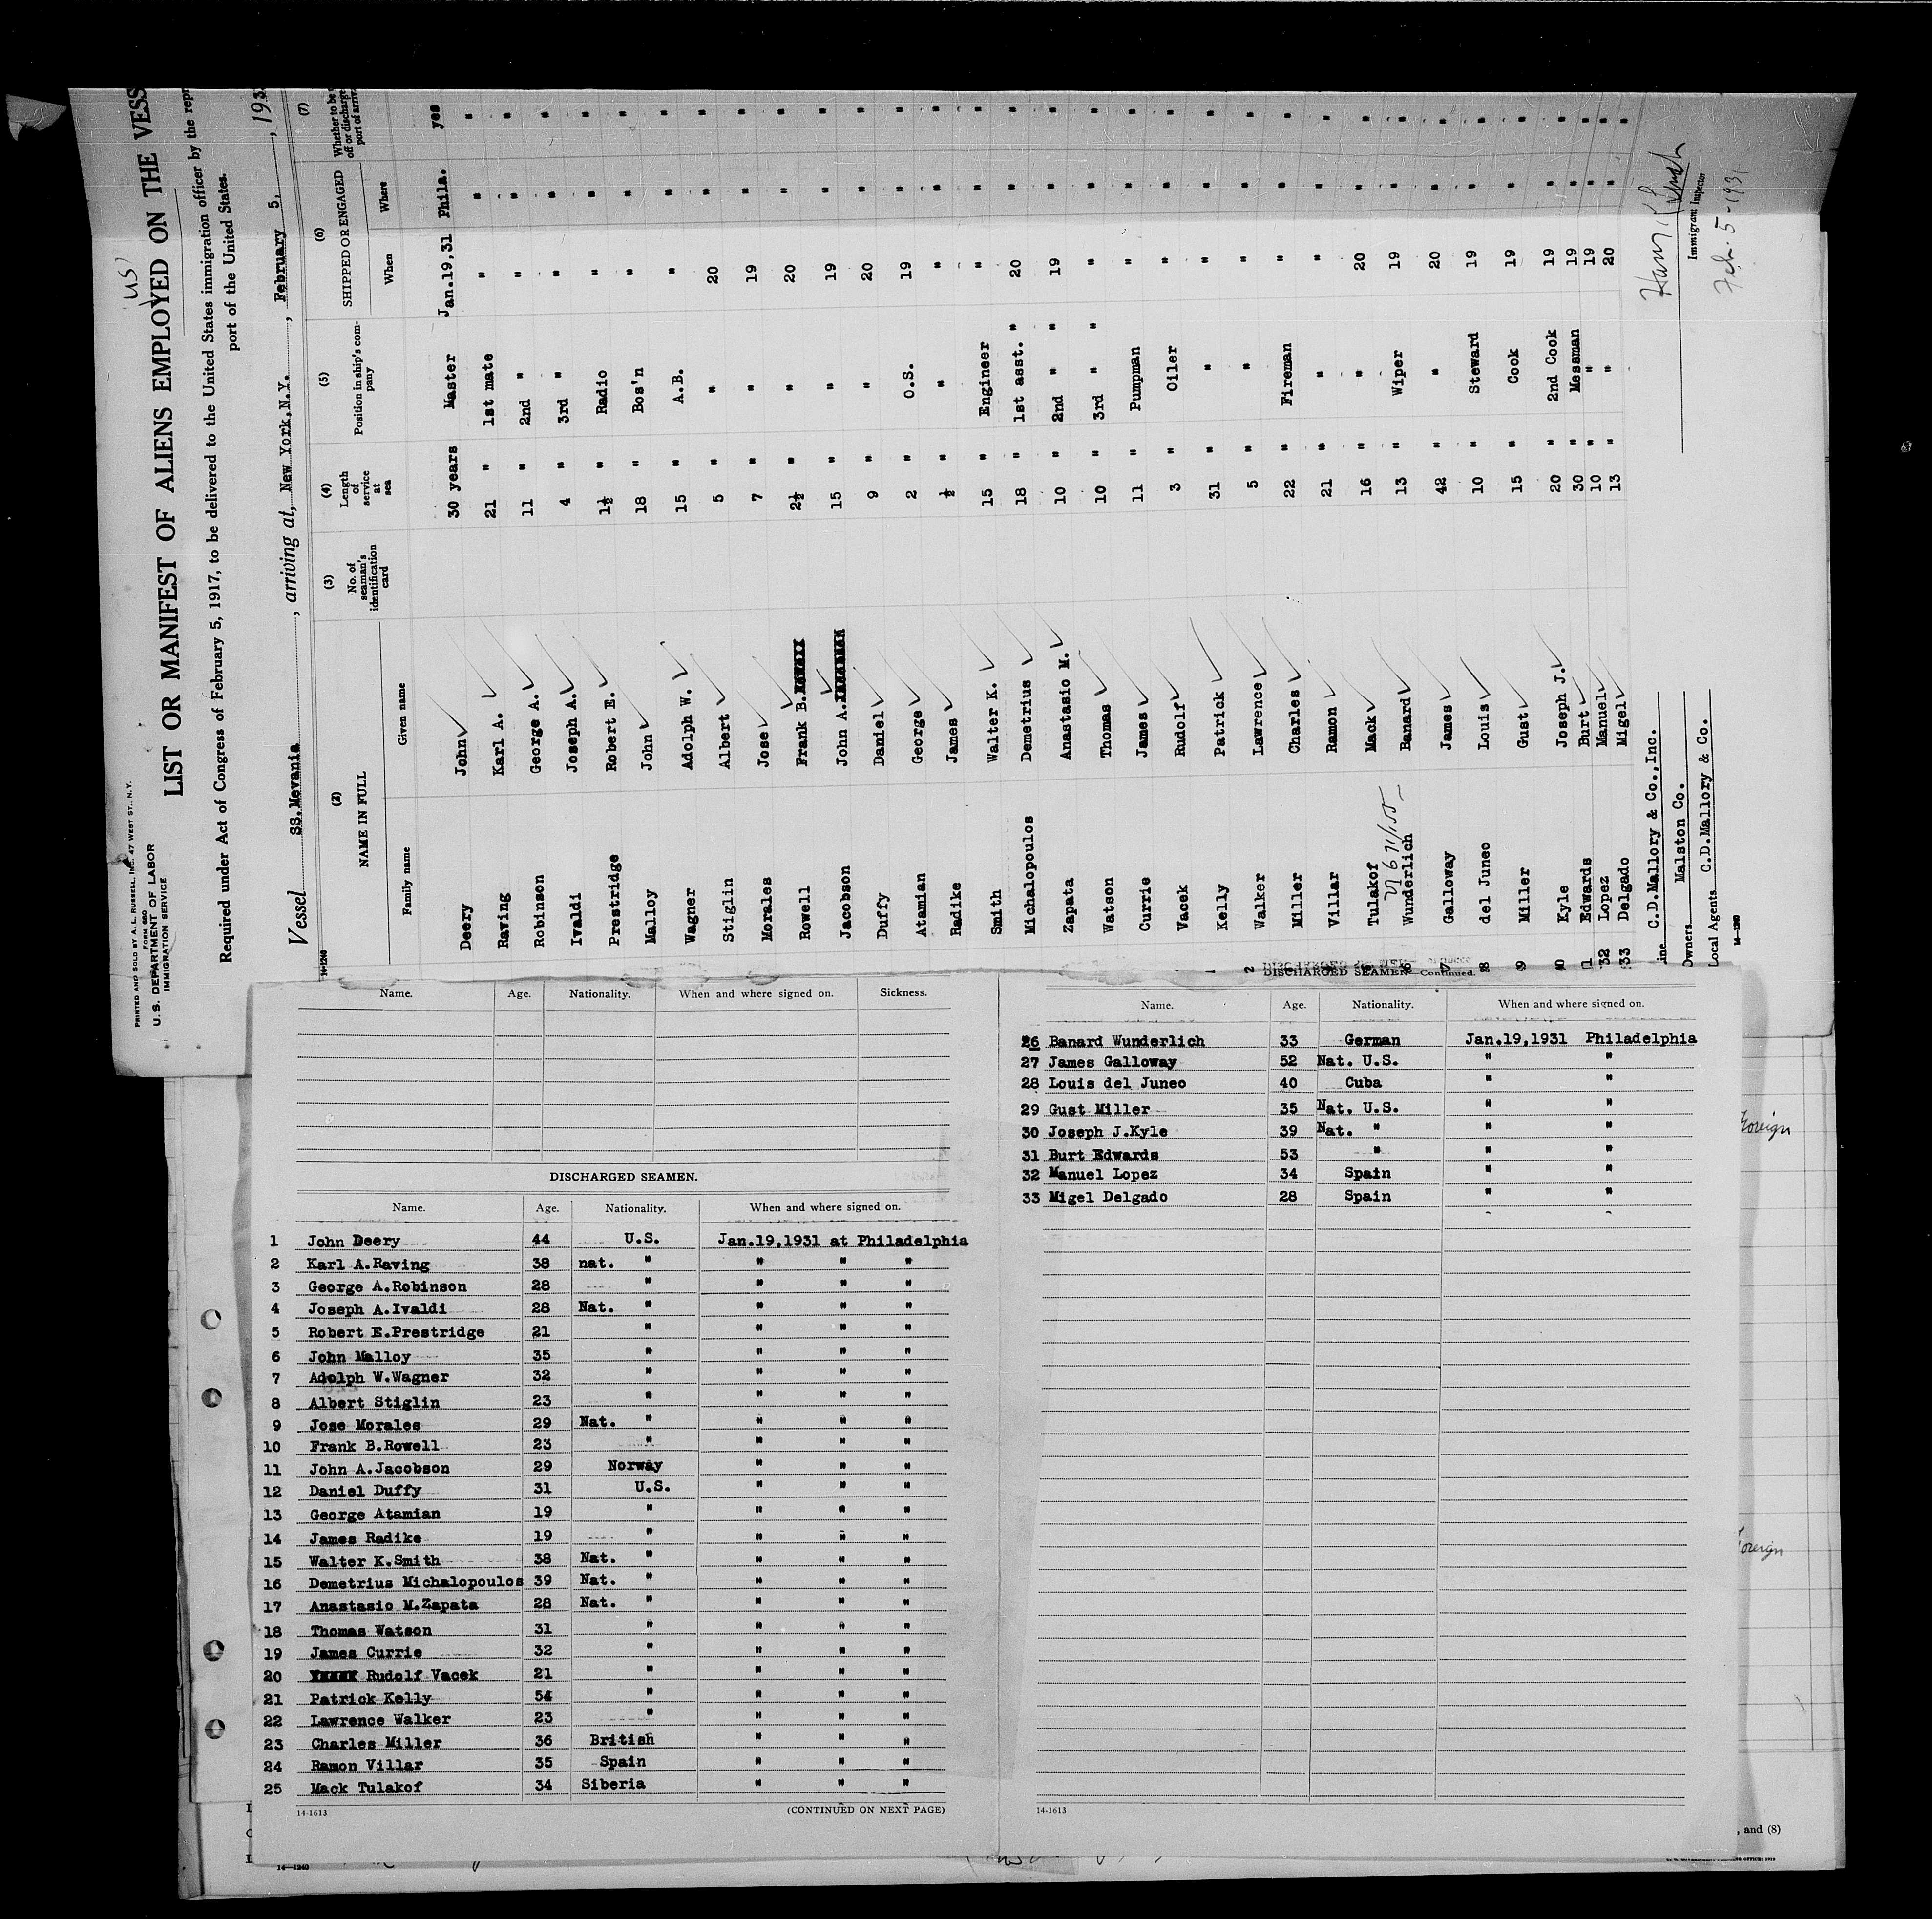 PRINTED AND SOLD BY A. L. RUSSELL, INC. 47 WEST ST., N.Y.
FORM 680
U. S. DEPARTMENT OF LABOR
IMMIGRATION SERVICE
US
LIST OR MANIFEST OF ALIENS EMPLOYED ON THE VESS
Required under Act of Congress of February 5, 1917, to be delivered to the United States immigration officer by the repr
port of the United States.
Vessel SS.Mevania, arriving at, New York,N.Y., February 5, 193
14-1240
(2) (3) (4) (5) (6) (7)
NAME IN FULL No. of seaman's identification card Length of service at sea Position in ship's company SHIPPED OR ENGAGED Whether to be off or discharge port of arriva
Family name Given name When Where
Deery John 30 years Master Jan.19,31 Phila. yes
Raving Karl A. 21 " 1st mate " " "
Robinson George A. 11 " 2nd " " " "
Ivaldi Joseph A. 4 " 3rd " " " "
Prestridge Robert E. 1½ " Radio " " "
Malloy John 18 " Bos'n " " "
Wagner Adolph W. 15 " A.B. " " "
Stiglin Albert 5 " " 20 " "
Morales Jose 7 " " 19 " "
Rowell Frank B. 2½ " " 20 " "
Jacobson John A. 15 " " 19 " "
Duffy Daniel 9 " " 20 " "
Atamian George 2 " O.S. 19 " "
Radike James ½ " " " " "
Smith Walter K. 15 " Engineer " " "
Michalopoulos Demetrius 18 " 1st asst. " 20 " "
Zapata Anastasio M. 10 " 2nd " " 19 " "
Watson Thomas 10 " 3rd " " " " "
Currie James 11 " Pumpman " " "
Vacek Rudolf 3 " Oiler " " "
Kelly Patrick 31 " " " " "
2 Walker Lawrence 5 " " " " "
Miller Charles 22 " Fireman " " "
Villar Ramon 21 " " " " "
Tulakof Mack 16 " " 20 " "
Wunderlich Banard 13 " Wiper 19 " "
Galloway James 42 " " 20 " "
del Juneo Louis 10 " Steward 19 " "
Miller Gust 15 " Cook 19 " "
Kyle Joseph J. 20 " 2nd Cook 19 " "
Edwards Burt 30 " Messman 19 " "
32 Lopez Manuel 10 " " 19 " "
33 Delgado Migel 13 " " 20 " "
ine C.D.Mallory & Co.,Inc.
Owners Malston Co.
Local Agents C.D.Mallory & Co.
14-1240
Immigrant Inspector
Feb. 5-1931
Name. Age. Nationality. When and where signed on. Sickness.
DISCHARGED SEAMEN.
Name. Age. Nationality. When and where signed on.
1 John Deery 44 U.S. Jan.19,1931 at Philadelphia
2 Karl A.Raving 38 nat. " " " "
3 George A.Robinson 28 " " " "
4 Joseph A.Ivaldi 28 Nat. " " " "
5 Robert E.Prestridge 21 " " " "
6 John Malloy 35 " " " "
7 Adolph W.Wagner 32 " " " "
8 Albert Stiglin 23 " " " "
9 Jose Morales 29 Nat. " " " "
10 Frank B.Rowell 23 " " " "
11 John A.Jacobson 29 Norway " " "
12 Daniel Duffy 31 U.S. " " "
13 George Atamian 19 " " " "
14 James Radike 19 " " " "
15 Walter K.Smith 38 Nat. " " " "
16 Demetrius Michalopoulos 39 Nat. " " " "
17 Anastasio M.Zapata 28 Nat. " " " "
18 Thomas Watson 31 " " " "
19 James Currie 32 " " " "
20 Rudolf Vacek 21 " " " "
21 Patrick Kelly 54 " " " "
22 Lawrence Walker 23 " " " "
23 Charles Miller 36 British " " "
24 Ramon Villar 35 Spain " " "
25 Mack Tulakof 34 Siberia " " "
14-1613 (CONTINUED ON NEXT PAGE)
DISCHARGED SEAMEN—Continued.
Name. Age. Nationality. When and where signed on.
26 Banard Wunderlich 33 German Jan.19,1931 Philadelphia
27 James Galloway 52 Nat. U.S. " "
28 Louis del Juneo 40 Cuba " "
29 Gust Miller 35 Nat. U.S. " "
30 Joseph J.Kyle 39 Nat. " " "
31 Burt Edwards 53 " " "
32 Manuel Lopez 34 Spain " "
33 Migel Delgado 28 Spain " "
14-1613
Foreign
Foreign
, and (8)
14-1240